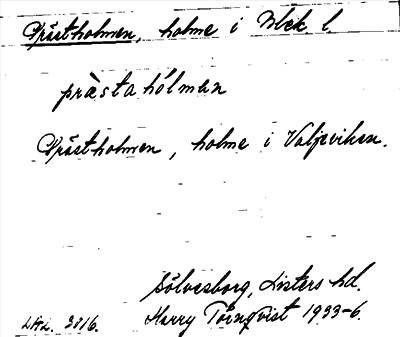 Prästholmen, holme i Blek l.
præ̀sta hólman
Prästholmen, holme i Valjeviken.
Sölvesborg, Listers hd.
Harry Törnqvist 1933-6.
LAL. 3816.